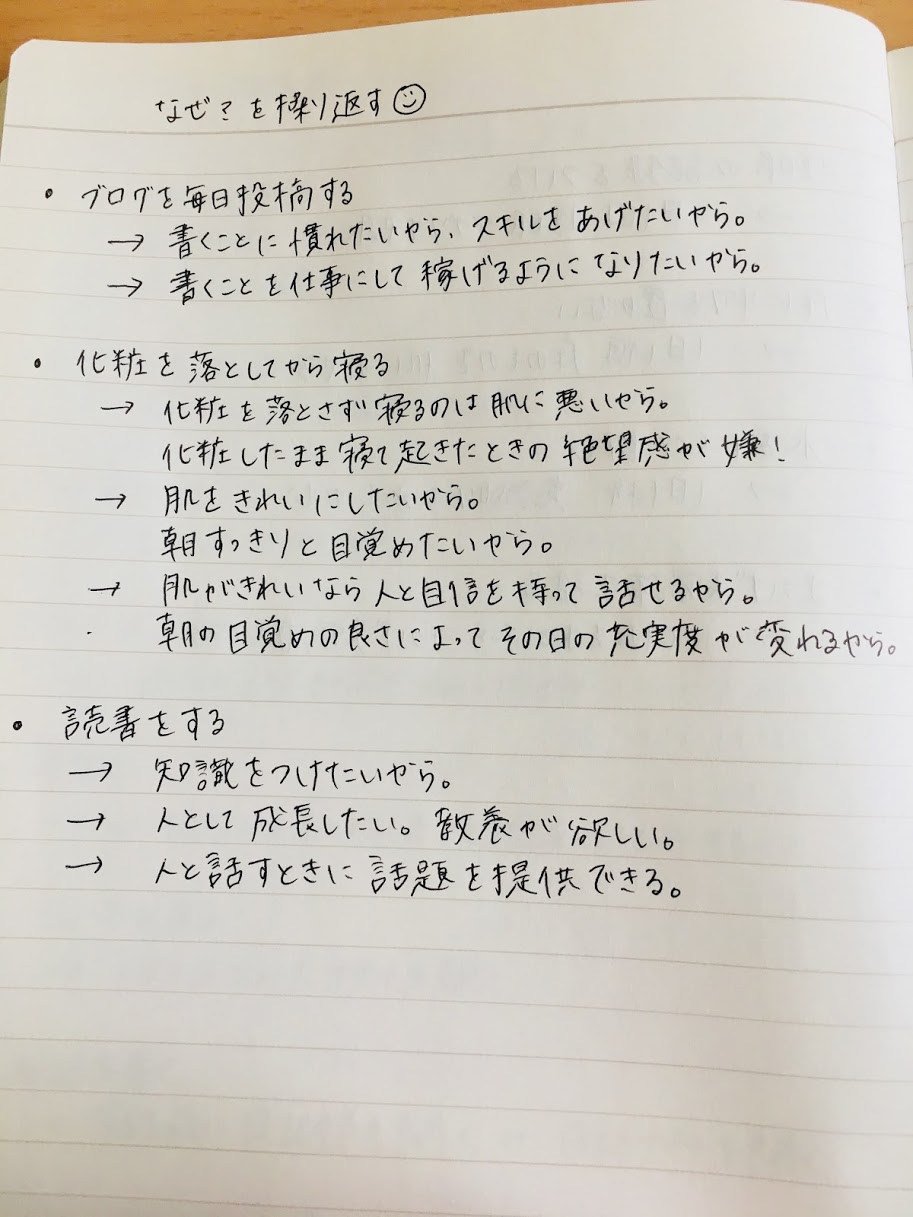 なぜ?を繰り返す☺
・ブログを毎日投稿する
→ 書くことに慣れたいから、スキルをあげたいから。
→ 書くことを仕事にして稼げるようになりたいから。
・化粧を落としてから寝る
→ 化粧を落とさず寝るのは肌に悪いから。
化粧したまま寝て起きたときの絶望感が嫌!
→ 肌をきれいにしたいから。
朝すっきりと目覚めたいから。
→ 肌がきれいなら人と自信を持って話せるから。
朝の目覚めの良さによってその日の充実度が変わるから。
・読書をする
→ 知識をつけたいから。
→ 人として成長したい。教養が欲しい。
→ 人と話すときに話題を提供できる。